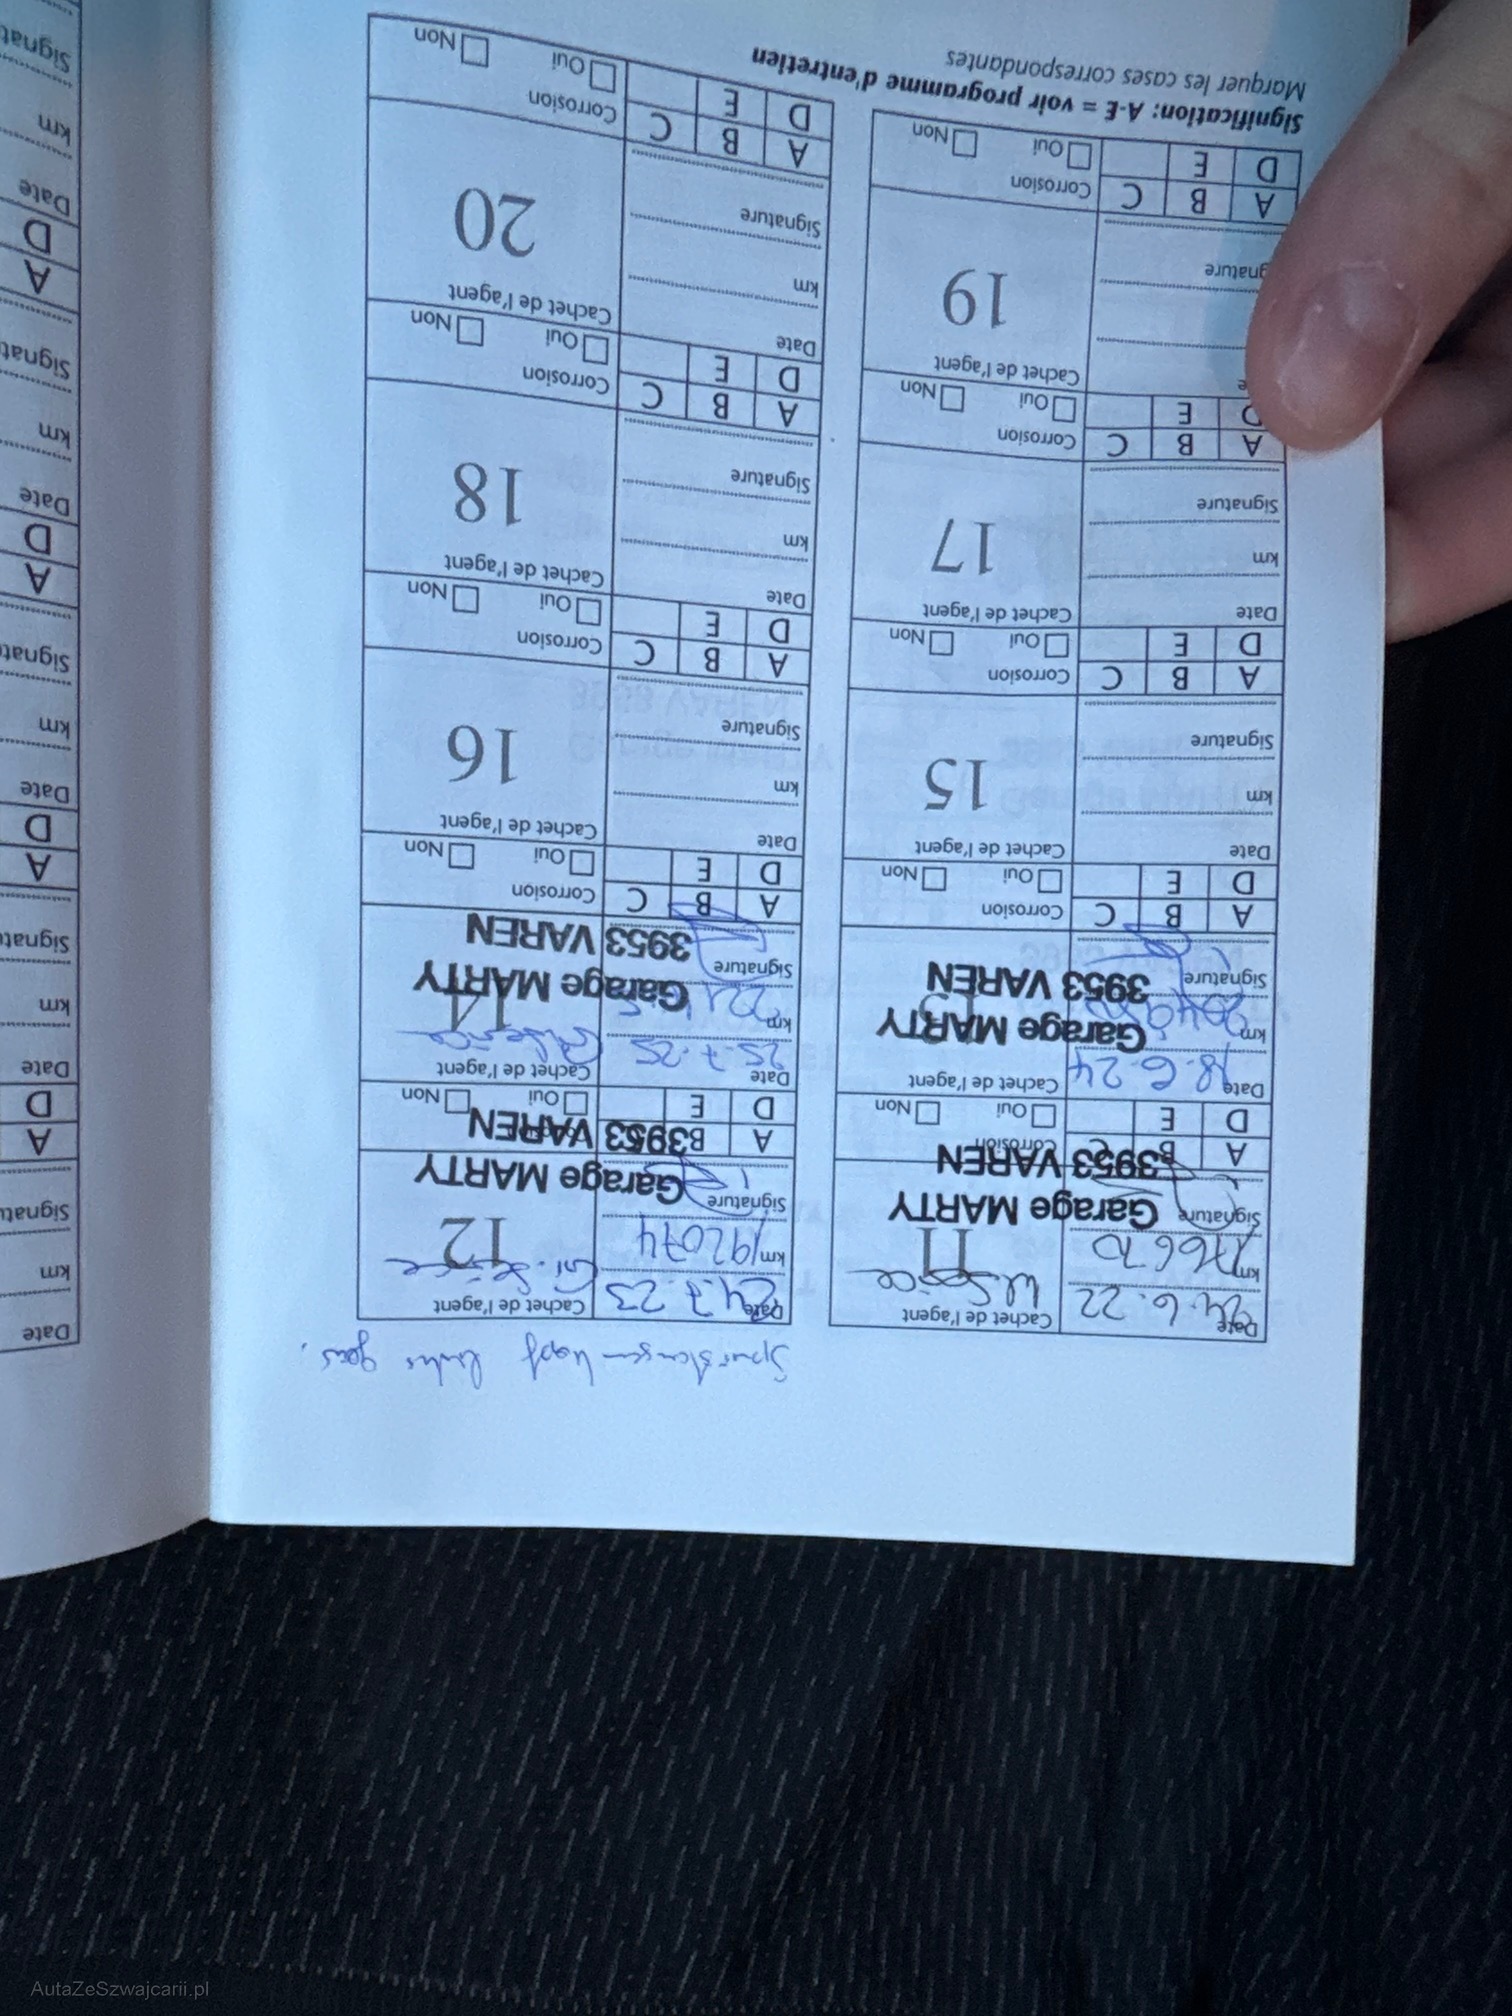 Date 24.6.22
km 176670
Signature
Cachet de l'agent
11
Garage MARTY
3953 VAREN
A B C
D E
Corrosion
Oui Non
Spurstangenkopf
Date 24.7.23
km 192074
Signature
Cachet de l'agent
12
Garage MARTY
3953 VAREN
A B C
D E
Oui Non
Date 18.6.24
km
Signature
Cachet de l'agent
13
Garage MARTY
3953 VAREN
A B C
D E
Corrosion
Oui Non
Date 25.7.25
km
Signature
Cachet de l'agent
14
Garage MARTY
3953 VAREN
A B C
D E
Corrosion
Oui Non
Date
km
Signature
Cachet de l'agent
15
A B C
D E
Corrosion
Oui Non
Date
km
Signature
Cachet de l'agent
16
A B C
D E
Corrosion
Oui Non
Date
km
Signature
Cachet de l'agent
17
A B C
D E
Corrosion
Oui Non
Date
km
Signature
Cachet de l'agent
18
A B C
D E
Corrosion
Oui Non
Cachet de l'agent
19
A B C
D E
Corrosion
Oui Non
Date
km
Signature
Cachet de l'agent
20
A B C
D E
Corrosion
Oui Non
Signification: A-E = voir programme d'entretien
Marquer les cases correspondantes
Date
km
A
D
Date
km
A
D
Date
km
A
D
Date
km
A
D
Date
km
AutaZeSzwajcarii.pl